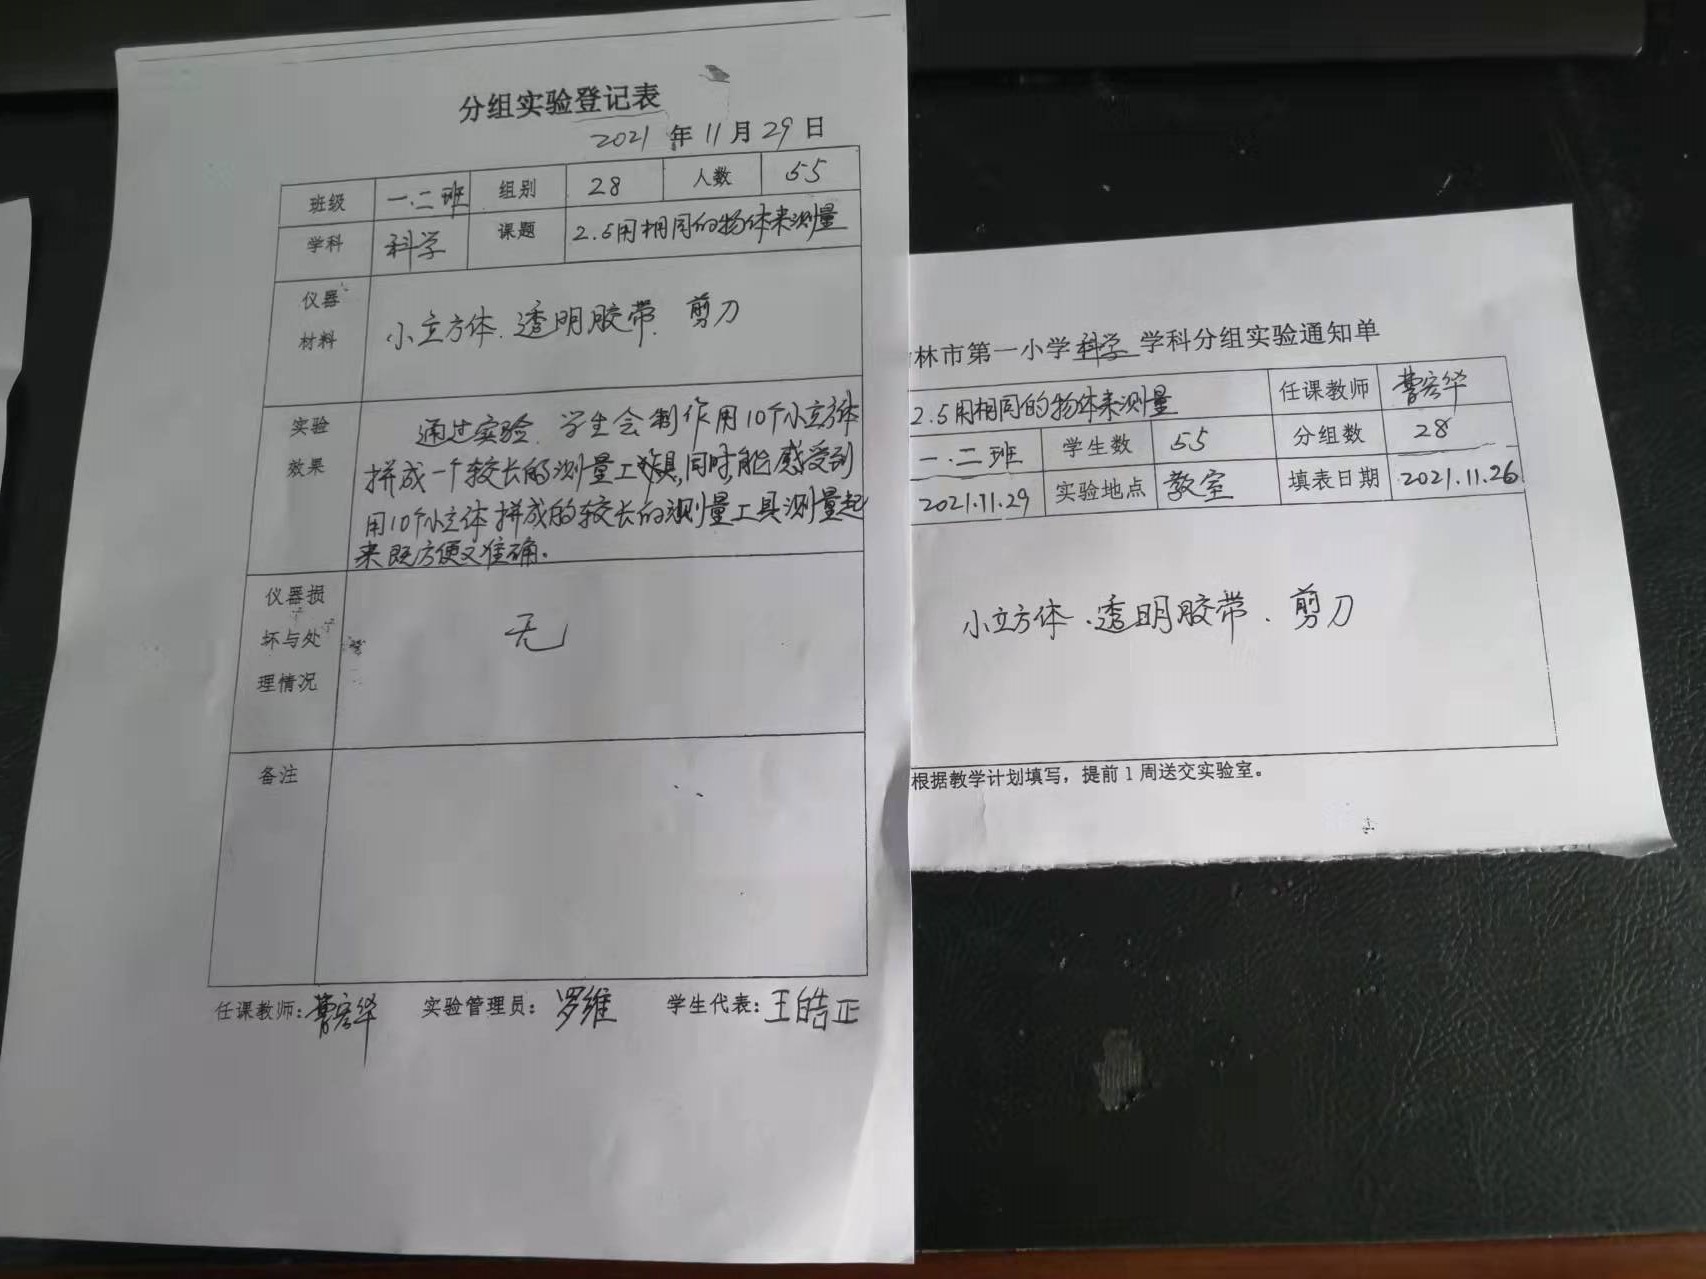 分组实验登记表
2021 年 11 月 29 日
班级 一.二班 组别 28 人数 55
学科 科学 课题 2.5用相同的物体来测量
仪器
材料
小立方体.透明胶带.剪刀
实验
效果
通过实验.学生会制作用10个小立方体
拼成一个较长的测量工具,同时,能感受到
用10个小立体拼成的较长的测量工具测量起
来既方便又准确.
仪器损
坏与处
理情况
无
备注
任课教师: 曹宏华 实验管理员: 罗维 学生代表: 王皓正
林市第一小学科学学科分组实验通知单
2.5用相同的物体来测量 任课教师 曹宏华
一.二班 学生数 55 分组数 28
2021.11.29 实验地点 教室 填表日期 2021.11.26
小立方体.透明胶带.剪刀
根据教学计划填写，提前1周送交实验室。